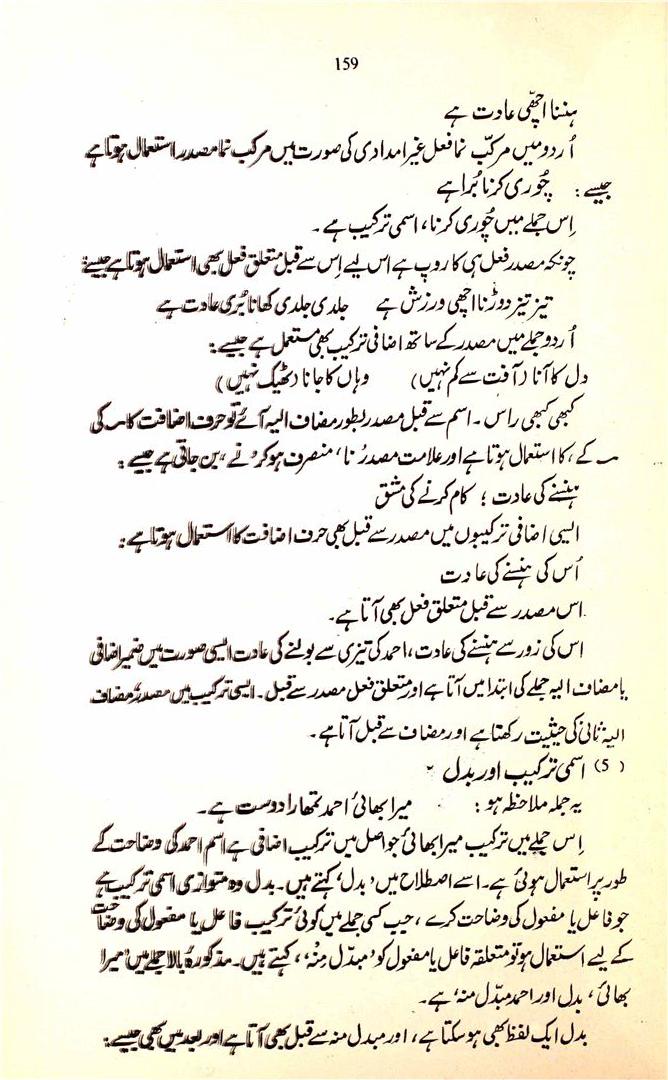 159
ہنسنا اچھّی عادت ہے
اُردو میں مرکّب نما فعل غیر امدادی کی صورت میں مرکب نما مصدر استعمال ہوتا ہے
جیسے : چُوری کرنا بُرا ہے
اِس جملے میں چُوری کرنا، اسمی ترکیب ہے ۔
چونکہ مصدر فعل ہی کا روپ ہے اس لیے اِس سے قبل متعلق فعل بھی استعمال ہوتا ہے جیسے :
تیز تیز دوڑنا اچھی ورزش ہے جلدی جلدی کھانا بُری عادت ہے
اُردو جملے میں مصدر کے ساتھ اضافی ترکیب بھی مستعمل ہے جیسے :
دل کا آنا (آفت سے کم نہیں) وہاں کا جانا (ٹھیک نہیں)
کبھی کبھی راس ۔ اسم سے قبل مصدر بطور مضاف الیہ آئے تو حرف اضافت کا۔ کی
۔ کے، کا استعمال ہوتا ہے اور علامت مصدر 'نا' منصرف ہو کر 'نے' بن جاتی ہے جیسے :
ہنسنے کی عادت ؛ کام کرنے کی مشق
ایسی اضافی ترکیبوں میں مصدر سے قبل بھی حرف اضافت کا استعمال ہوتا ہے :
اُس کی ہنسنے کی عادت
اس مصدر سے قبل متعلق فعل بھی آتا ہے۔
اس کی زور سے ہنسنے کی عادت، احمد کی تیزی سے بولنے کی عادت ایسی صورت میں ضمیر اضافی
یا مضاف الیہ جملے کی ابتدا میں آتا ہے اور متعلق فعل مصدر سے قبل ۔ ایسی ترکیب میں مصدر 'مضاف
الیہ ثانی' کی حیثیت رکھتا ہے اور مضاف سے قبل آتا ہے ۔
(5) اسمی ترکیب اور بدل ۔
یہ جملہ ملاحظہ ہو : میرا بھائی احمد تمھارا دوست ہے ۔
اِس جملے میں ترکیب میرا بھائی جو اصل میں ترکیب اضافی ہے اسم احمد کی وضاحت کے
طور پر استعمال ہوئی ہے ۔ اسے اصطلاح میں 'بدل' کہتے ہیں۔ بدل وہ متوازی اسمی ترکیب ہے
جو فاعل یا مفعول کی وضاحت کرے ، جب کسی جملے میں کوئی ترکیب فاعل یا مفعول کی وضاحت
کے لیے استعمال ہو تو متعلقہ فاعل یا مفعول کو 'مبدّل مِنہُ' ، کہتے ہیں۔ مذکورہ بالا جملے میں 'میرا
بھائی' ، بدل اور احمد 'مبدّل منہ' ہے ۔
بدل ایک لفظ بھی ہو سکتا ہے ، اور مبدل منہ سے قبل بھی آتا ہے اور بعد میں بھی جیسے :